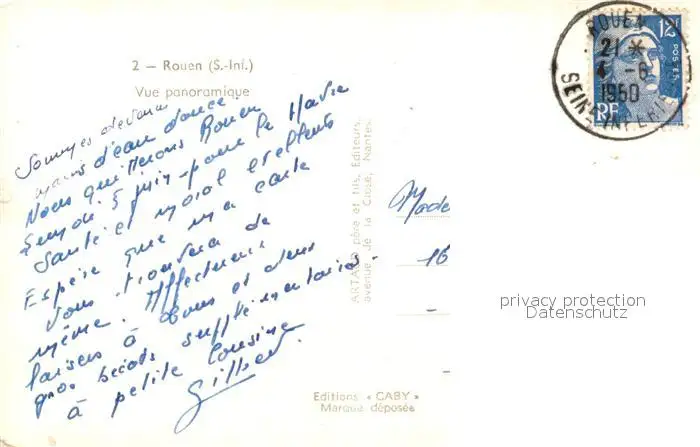 2 — Rouen (S.-Inf.)
Vue panoramique
Sommes devenus
marins d'eau douce.
Nous quitterons Rouen
5 juin pour le Havre
Santé et moral excellents
Espère que ma carte
vous trouvera de
même. Affectueux
baisers à tous et deux
gros bécots supplémentaires
à petite cousine
Gilbert
ARTAUD père et fils, Editeurs,
avenue de la Close, Nantes.
Editions « CABY »
Marque déposée
Made
16
ROUEN
21 *
4 - 6
1950
SEINE INFERI
12F
POSTES
RF
privacy protection
Datenschutz